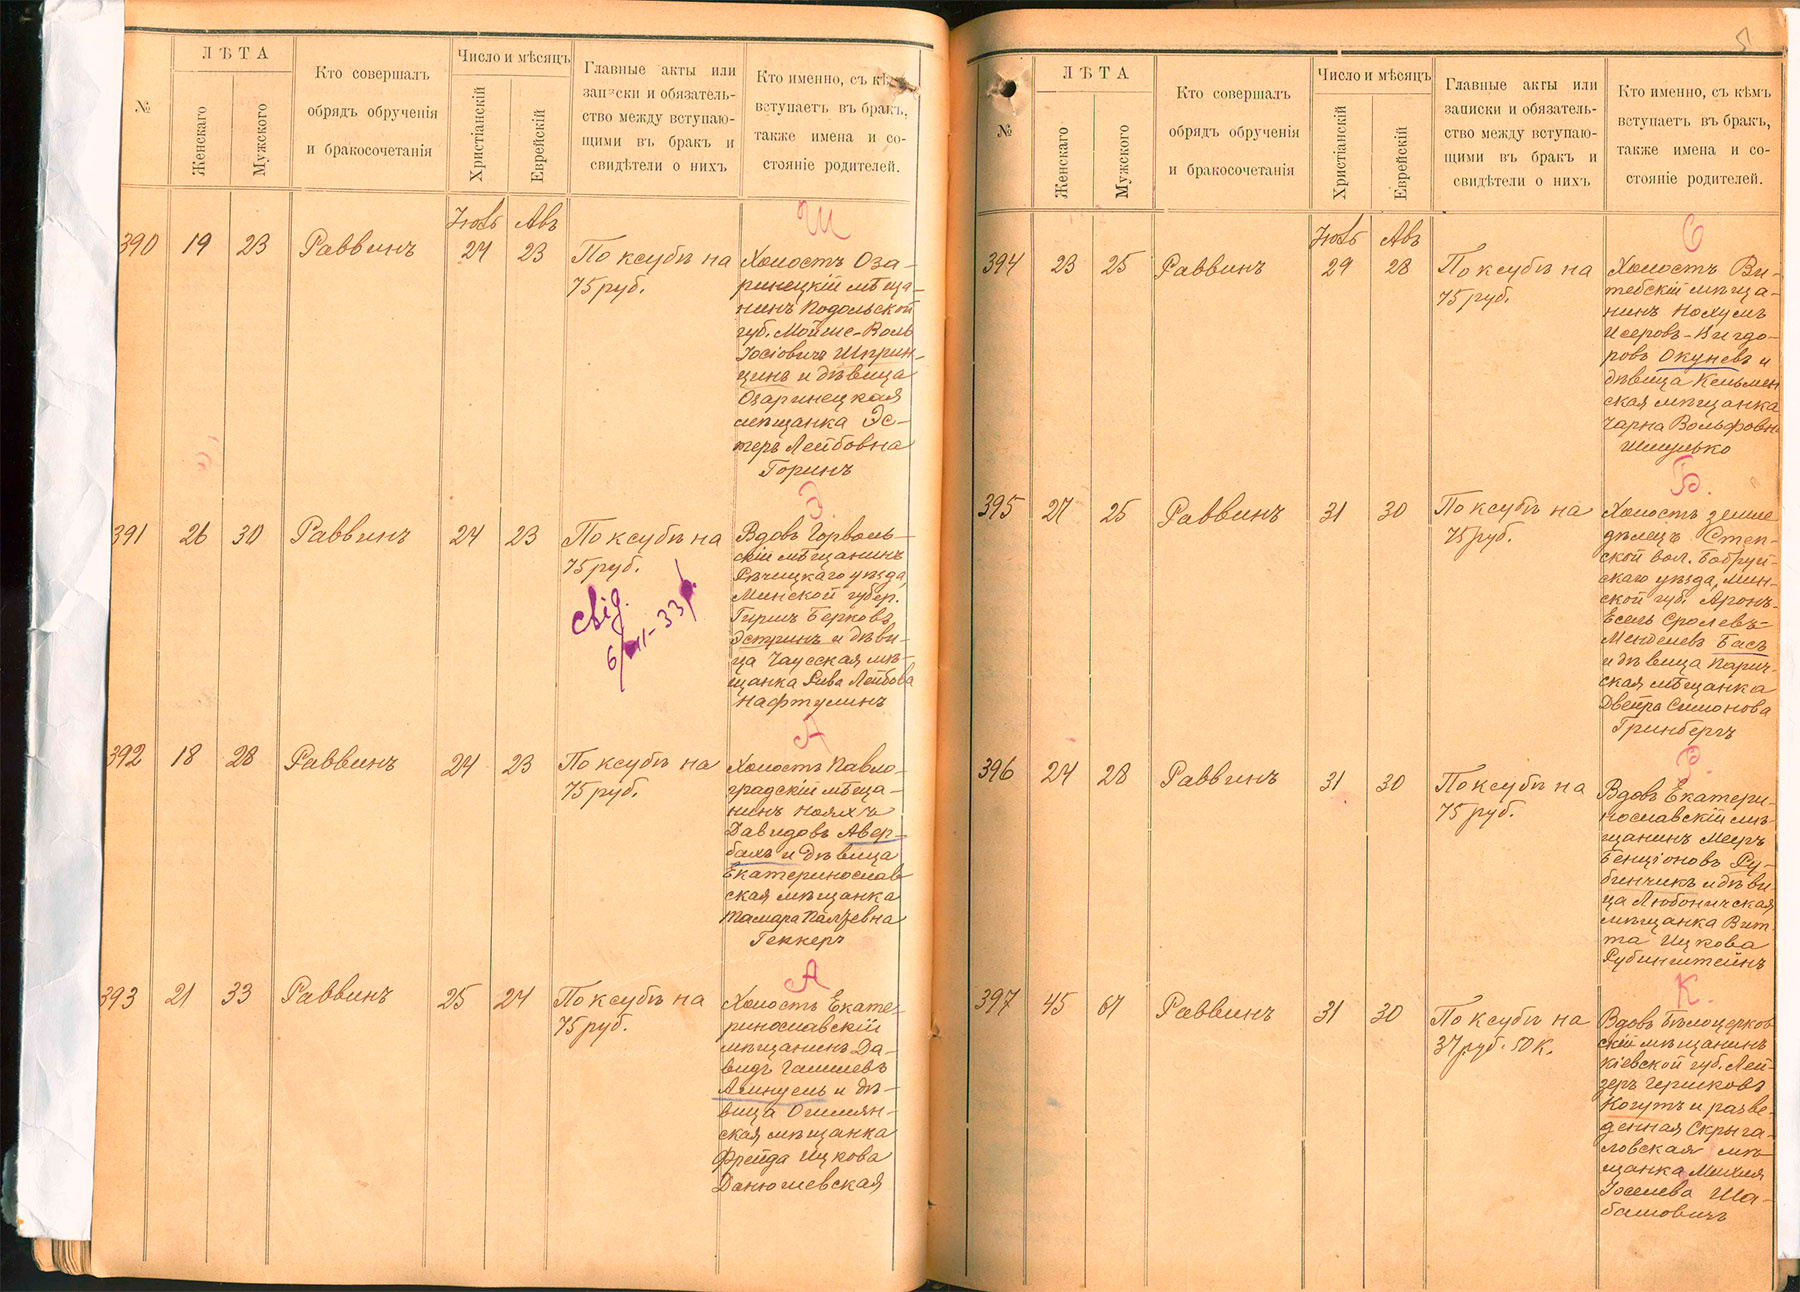 №
ЛѢТА
Женскаго
Мужского
Кто совершалъ
обрядъ обрученія
и бракосочетанія
Число и мѣсяцъ
Христіанскій
Еврейскій
Главные акты или
записки и обязатель-
ство между вступаю-
щими въ бракъ и
свидѣтели о нихъ
Кто именно, съ кѣмъ
вступаетъ въ бракъ,
также имена и со-
стояніе родителей.
Іюль Авъ
Ш
390 19 23 Раввинъ 24 23 По ксубѣ на
75 руб.
Холостъ Оза-
ринецкій мѣща-
нинъ Подольской
губ. Мойше-Воль
Іосіовичъ Шприн-
цинъ и дѣвица
Озаринецкая
мѣщанка Эс-
теръ Лейбовна
Горинъ
Э.
391 26 30 Раввинъ 24 23 По ксубѣ на
75 руб.
Вдовъ Горволь-
скій мѣщанинъ
Рѣчицкаго уѣзда,
Минской губер.
Гиршъ Берковъ
Эстринъ и дѣви-
ца Чаусская мѣ-
щанка Рива Лейбова
Нафтулинъ
А
392 18 28 Раввинъ 24 23 По ксубѣ на
75 руб.
Холостъ Павло-
градскій мѣща-
нинъ Нояхъ
Давидовъ Авер-
бахъ и дѣвица
Екатеринослав
ская мѣщанка
Тамара Палѣевна
Геккеръ
А
393 21 33 Раввинъ 25 24 По ксубѣ на
75 руб.
Холостъ Екате-
ринославскій
мѣщанинъ Да-
видъ
Аминуель и дѣ-
вица Ошмян-
ская мѣщанка
Фрейда Ицкова
Данюшевская
5
№
ЛѢТА
Женскаго
Мужского
Кто совершалъ
обрядъ обрученія
и бракосочетанія
Число и мѣсяцъ
Христіанскій
Еврейскій
Главные акты или
записки и обязатель-
ство между вступаю-
щими въ бракъ и
свидѣтели о нихъ
Кто именно, съ кѣмъ
вступаетъ въ бракъ,
также имена и со-
стояніе родителей.
Іюль Авъ
С
394 23 25 Раввинъ 29 28 По ксубѣ на
75 руб.
Холостъ Ви-
тебскій мѣща-
нинъ Нохумъ
Исеровъ-Вигдо-
ровъ Окуневъ и
дѣвица Кельмен
ская мѣщанка
Чарна Вольфовна
Шмулько
Б.
395 27 25 Раввинъ 31 30 По ксубѣ на
75 руб.
Холостъ земле
дѣлецъ Степ-
ской вол. Бобруй-
скаго уѣзда, Мин-
ской губ. Аронъ-
Есель Сролевъ-
Менделевъ Басъ
и дѣвица Парич-
ская мѣщанка
Двейра Симонова
Гринбергъ
Р.
396 24 28 Раввинъ 31 30 По ксубѣ на
75 руб.
Вдовъ Екатери-
нославскій мѣ-
щанинъ Мееръ
Бенціоновъ Ру-
бинчикъ и дѣви-
ца Любоничская
мѣщанка Вит-
та Ицкова
Рубинштейнъ
К.
397 45 67 Раввинъ 31 30 По ксубѣ на
37 руб. 50 к.
Вдовъ Бѣлоцерков
скій мѣщанинъ
Кіевской губ. Лей-
зеръ Гершковъ
Когутъ и разве-
денная Скрыга-
ловская мѣ-
щанка Михля
Іоселева Ша-
башовичъ